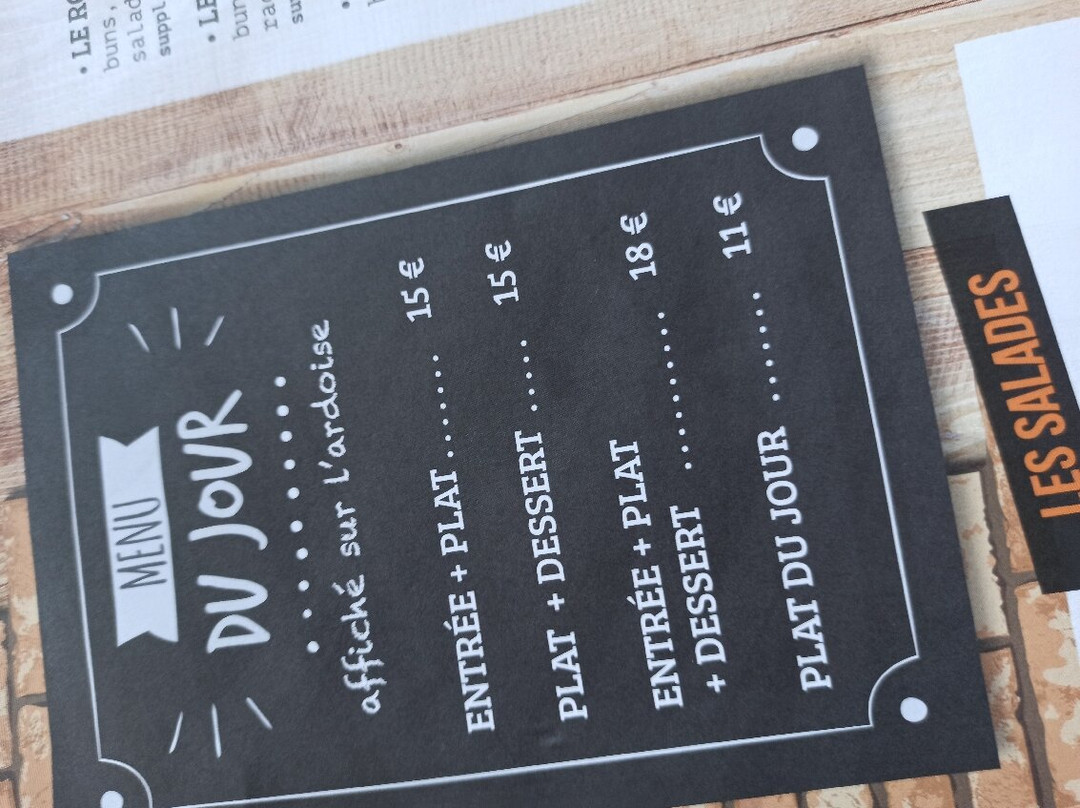 • LE
buns,
salad
suppl
• LE
MENU
DU JOUR
affiché sur l'ardoise
ENTRÉE + PLAT........ 15 €
PLAT + DESSERT ..... 15 €
ENTRÉE + PLAT
+ DESSERT .......... 18 €
PLAT DU JOUR ....... 11 €
LES SALADES